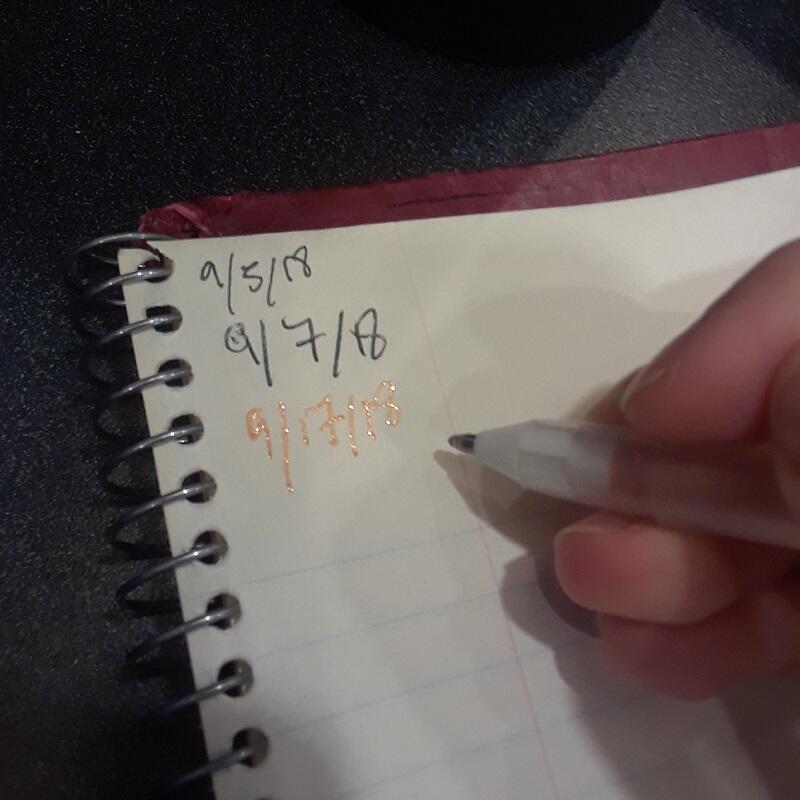 9/5/18
9/7/18
9/17/18